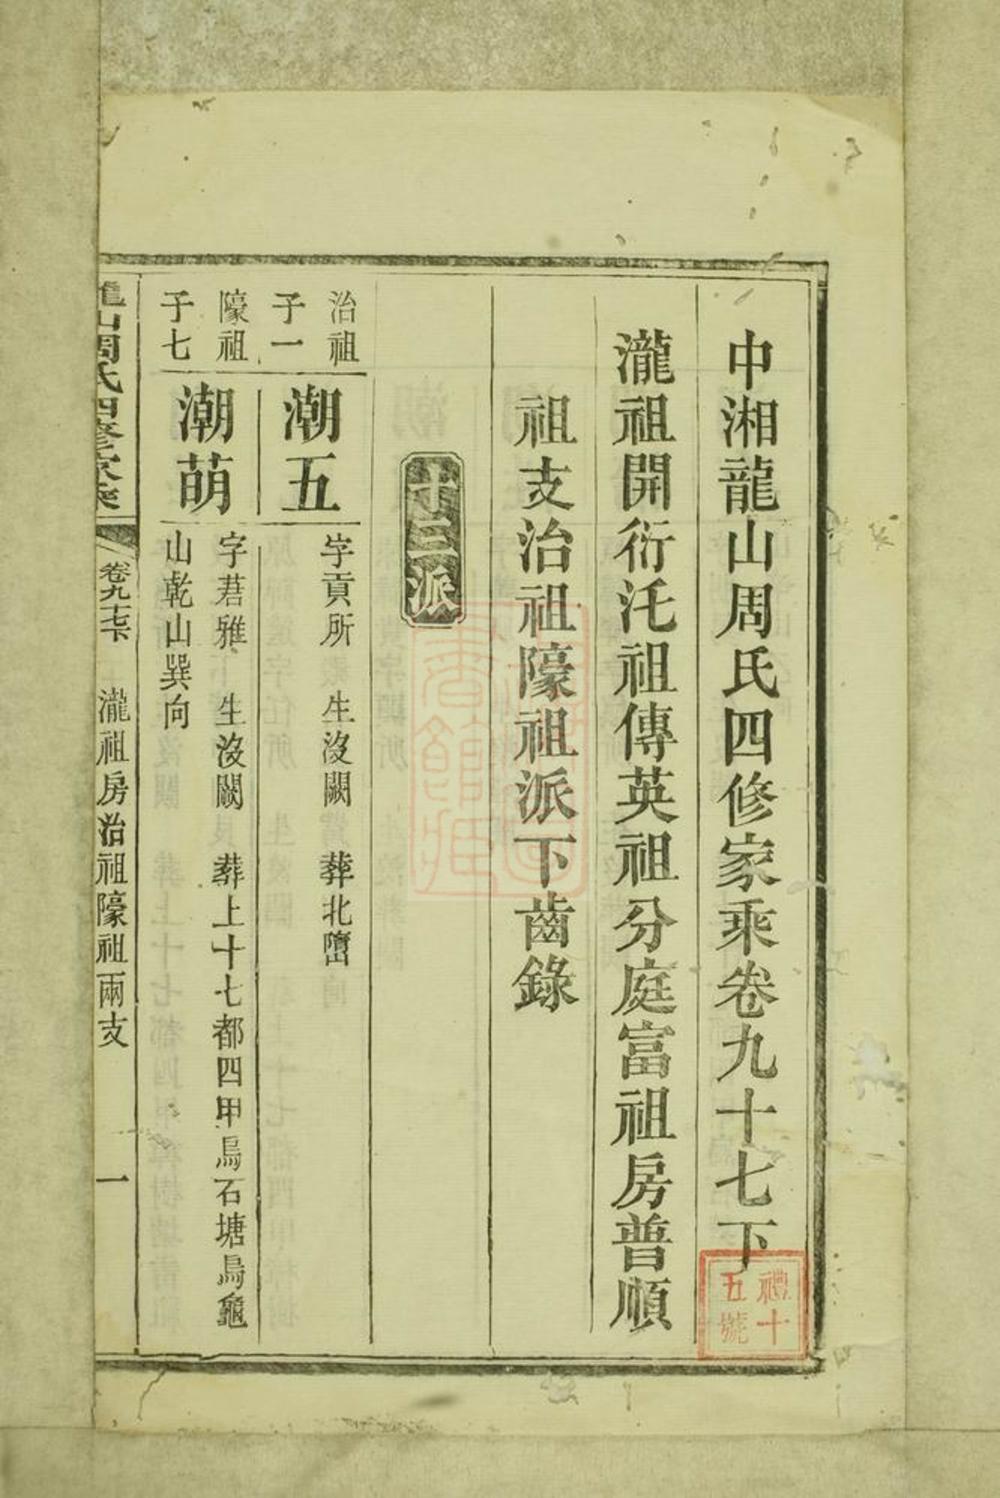 中湘龍山周氏四修家乘卷九十七下
瀧祖開衍汑祖傳英祖分庭富祖房普順
祖支治祖隊祖派下齒錄
十三派
治祖
子一
潮五
字貢所 生沒闕 葬北嶞
子七
潮萌
字莙雅 生沒闕 葬上十七都四甲烏石塘烏龜
山乾山巽向
山周氏四修家乘
卷九十七下
瀧祖房治祖㠙祖兩支
一
禮十
五號